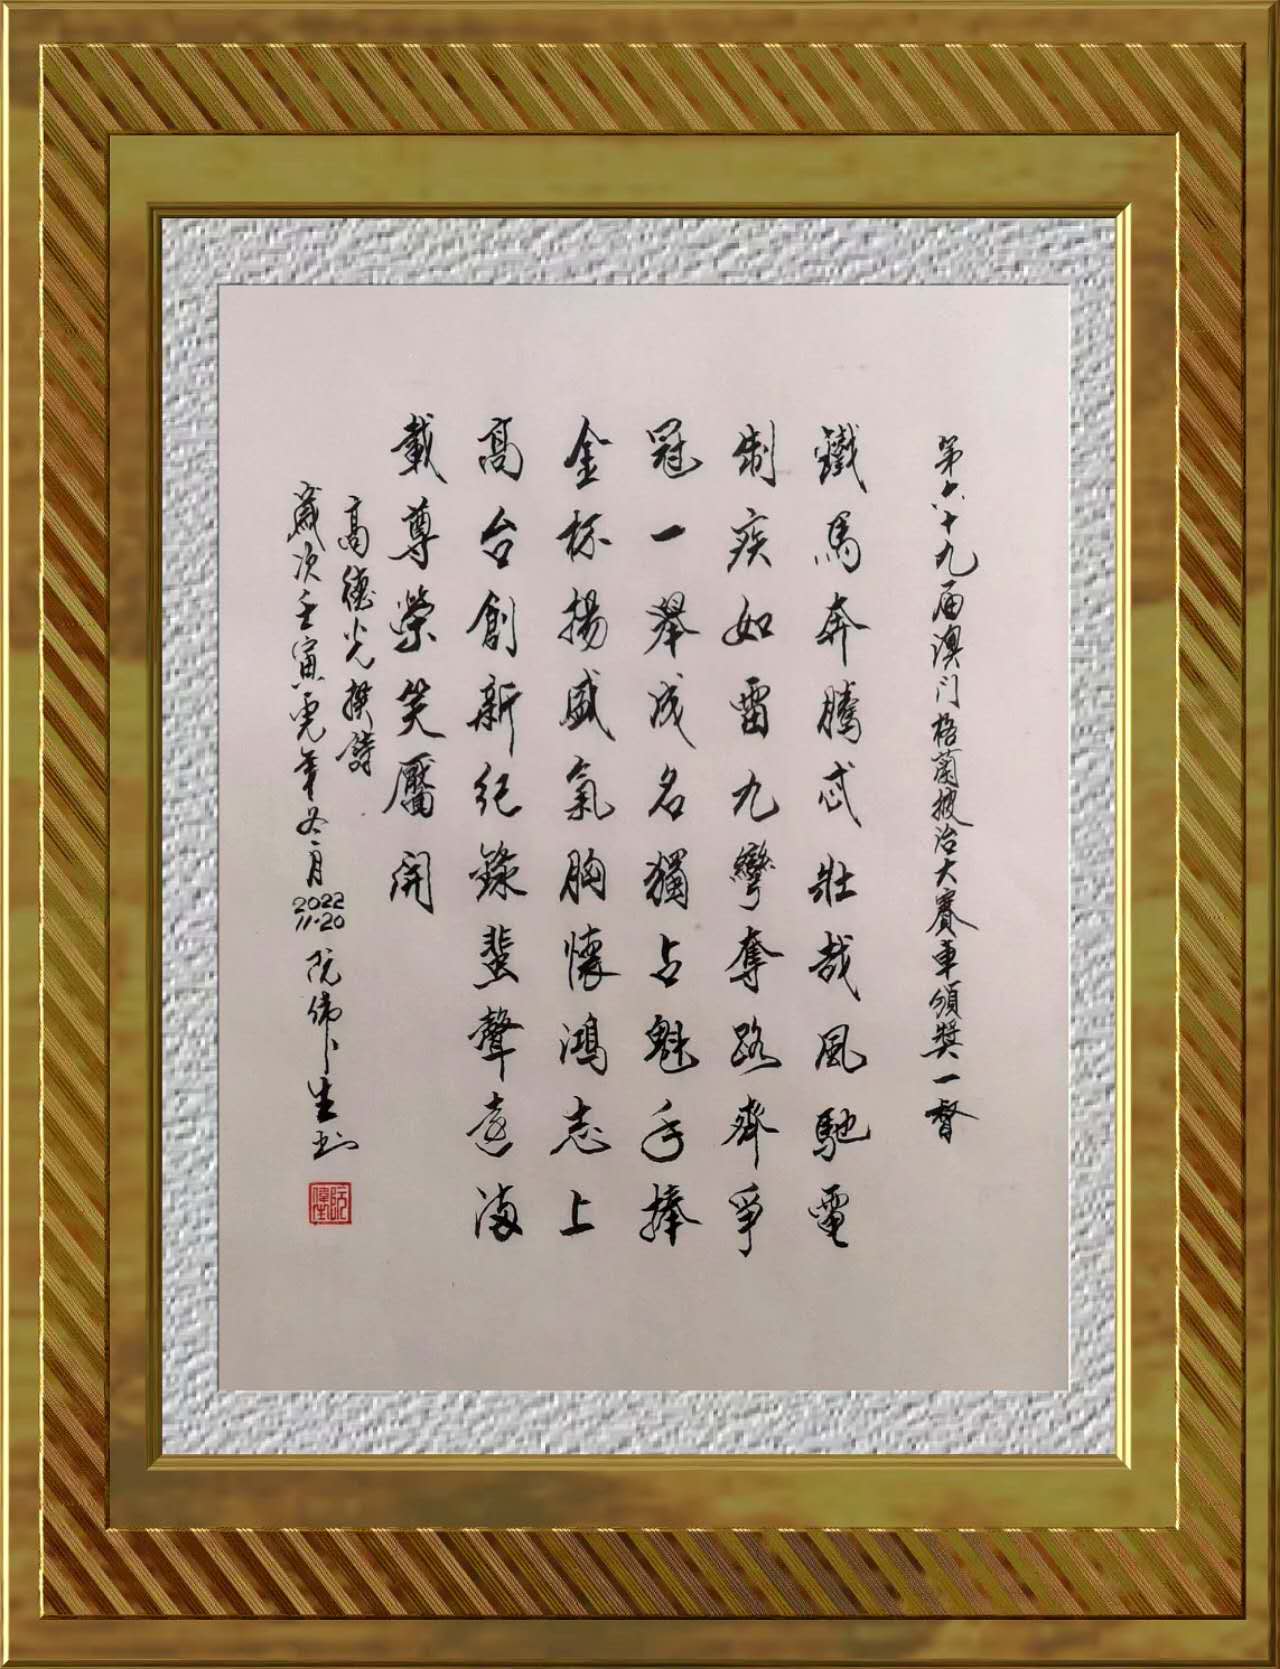 第六十九届澳门格蘭披治大賽車頒獎一督
鐵馬奔騰忒壯哉風馳電
制疾如雷九彎奪路齊爭
冠一舉成名獨占魁手捧
金杯揚盛氣胸懷鴻志上
高台創新紀錄蜚聲遠滿
載尊榮笑靨開
高德光撰詩
歲次壬寅虎年冬月
2022
11·20
阮偉生书